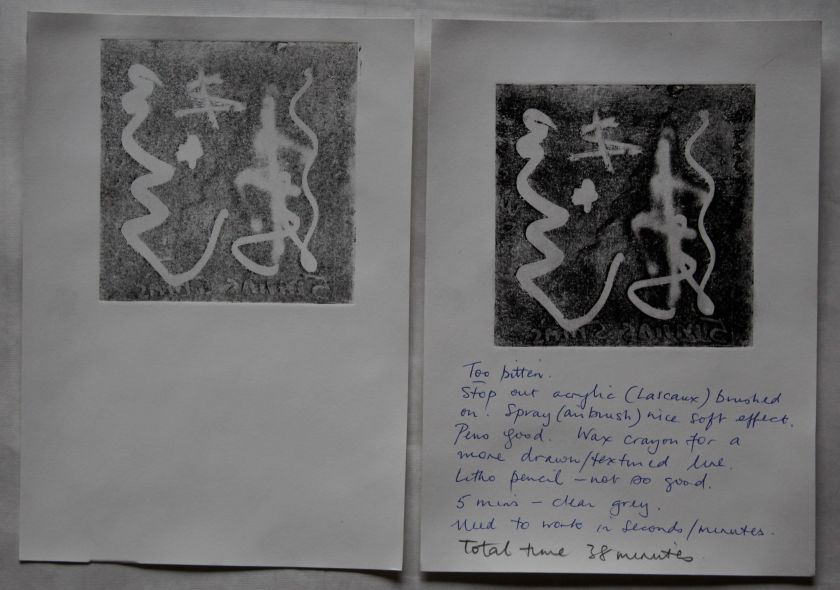 Too bitten.
Stop out acrylic (Lascaux) brushed
on. Spray (airbrush) nice soft effect.
Pens good. Wax crayon for a
more drawn/textured line.
Litho pencil – not so good.
5 mins – clear grey.
Need to work in seconds/minutes.
Total time 38 minutes